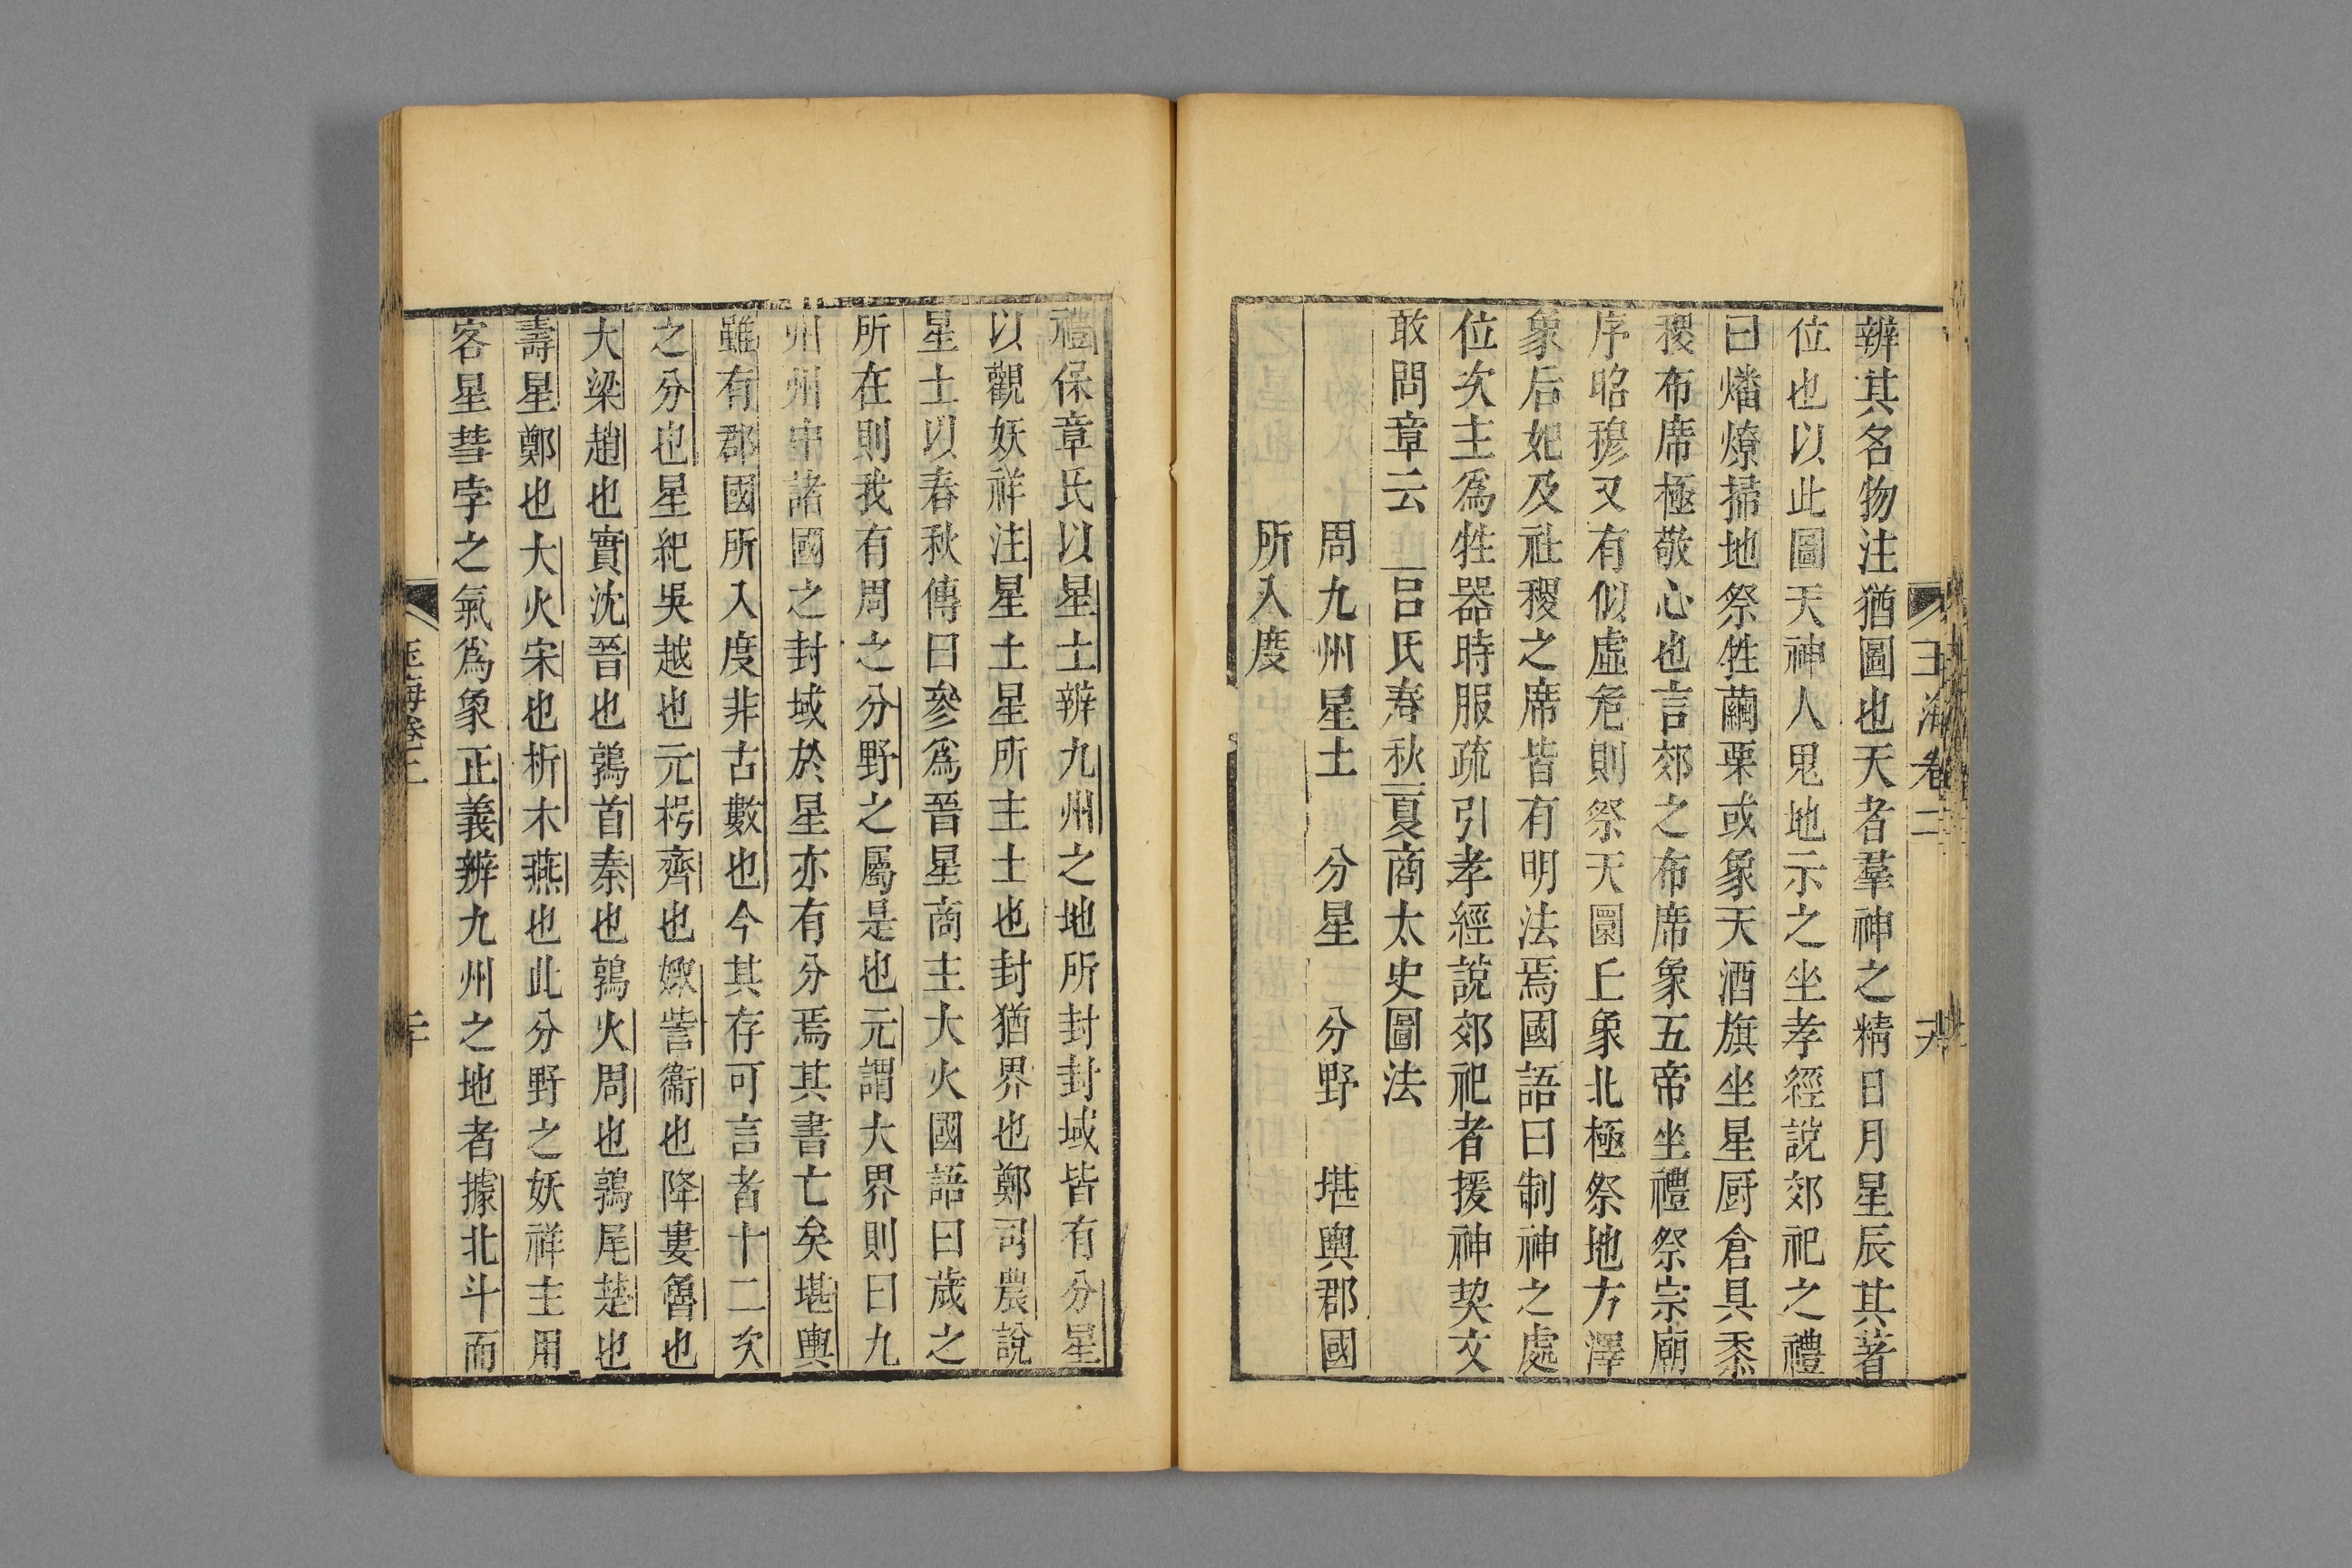 玉海卷二
辨其名物注猶圖也天者羣神之精日月星辰其著
位也以此圖天神人鬼地示之坐孝經說郊祀之禮
曰燔燎掃地祭牲繭栗或象天酒旗坐星厨倉具黍
稷布席極敬心也言郊之布席象五帝坐禮祭宗廟
序昭穆又有似虛危則祭天圜丘象北極祭地方澤
象后妃及社稷之席皆有明法焉國語曰制神之處
位次主爲牲器時服疏引孝經說郊祀者援神契文
敢問章云 呂氏春秋夏商太史圖法
周九州星土 分星 分野 堪輿郡國
所入度
禮保章氏以星土辨九州之地所封封域皆有分星
以觀妖祥注星土星所主土也封猶界也鄭司農說
星土以春秋傳曰參爲晉星商主大火國語曰歲之
所在則我有周之分野之屬是也元謂大界則曰九
州州中諸國之封域於星亦有分焉其書亡矣堪輿
雖有郡國所入度非古數也今其存可言者十二次
之分也星紀吳越也元枵齊也娵訾衞也降婁魯也
大梁趙也實沈晉也鶉首秦也鶉火周也鶉尾楚也
壽星鄭也大火宋也析木燕也此分野之妖祥主用
客星彗孛之氣爲象正義辨九州之地者據北斗而
玉海卷二